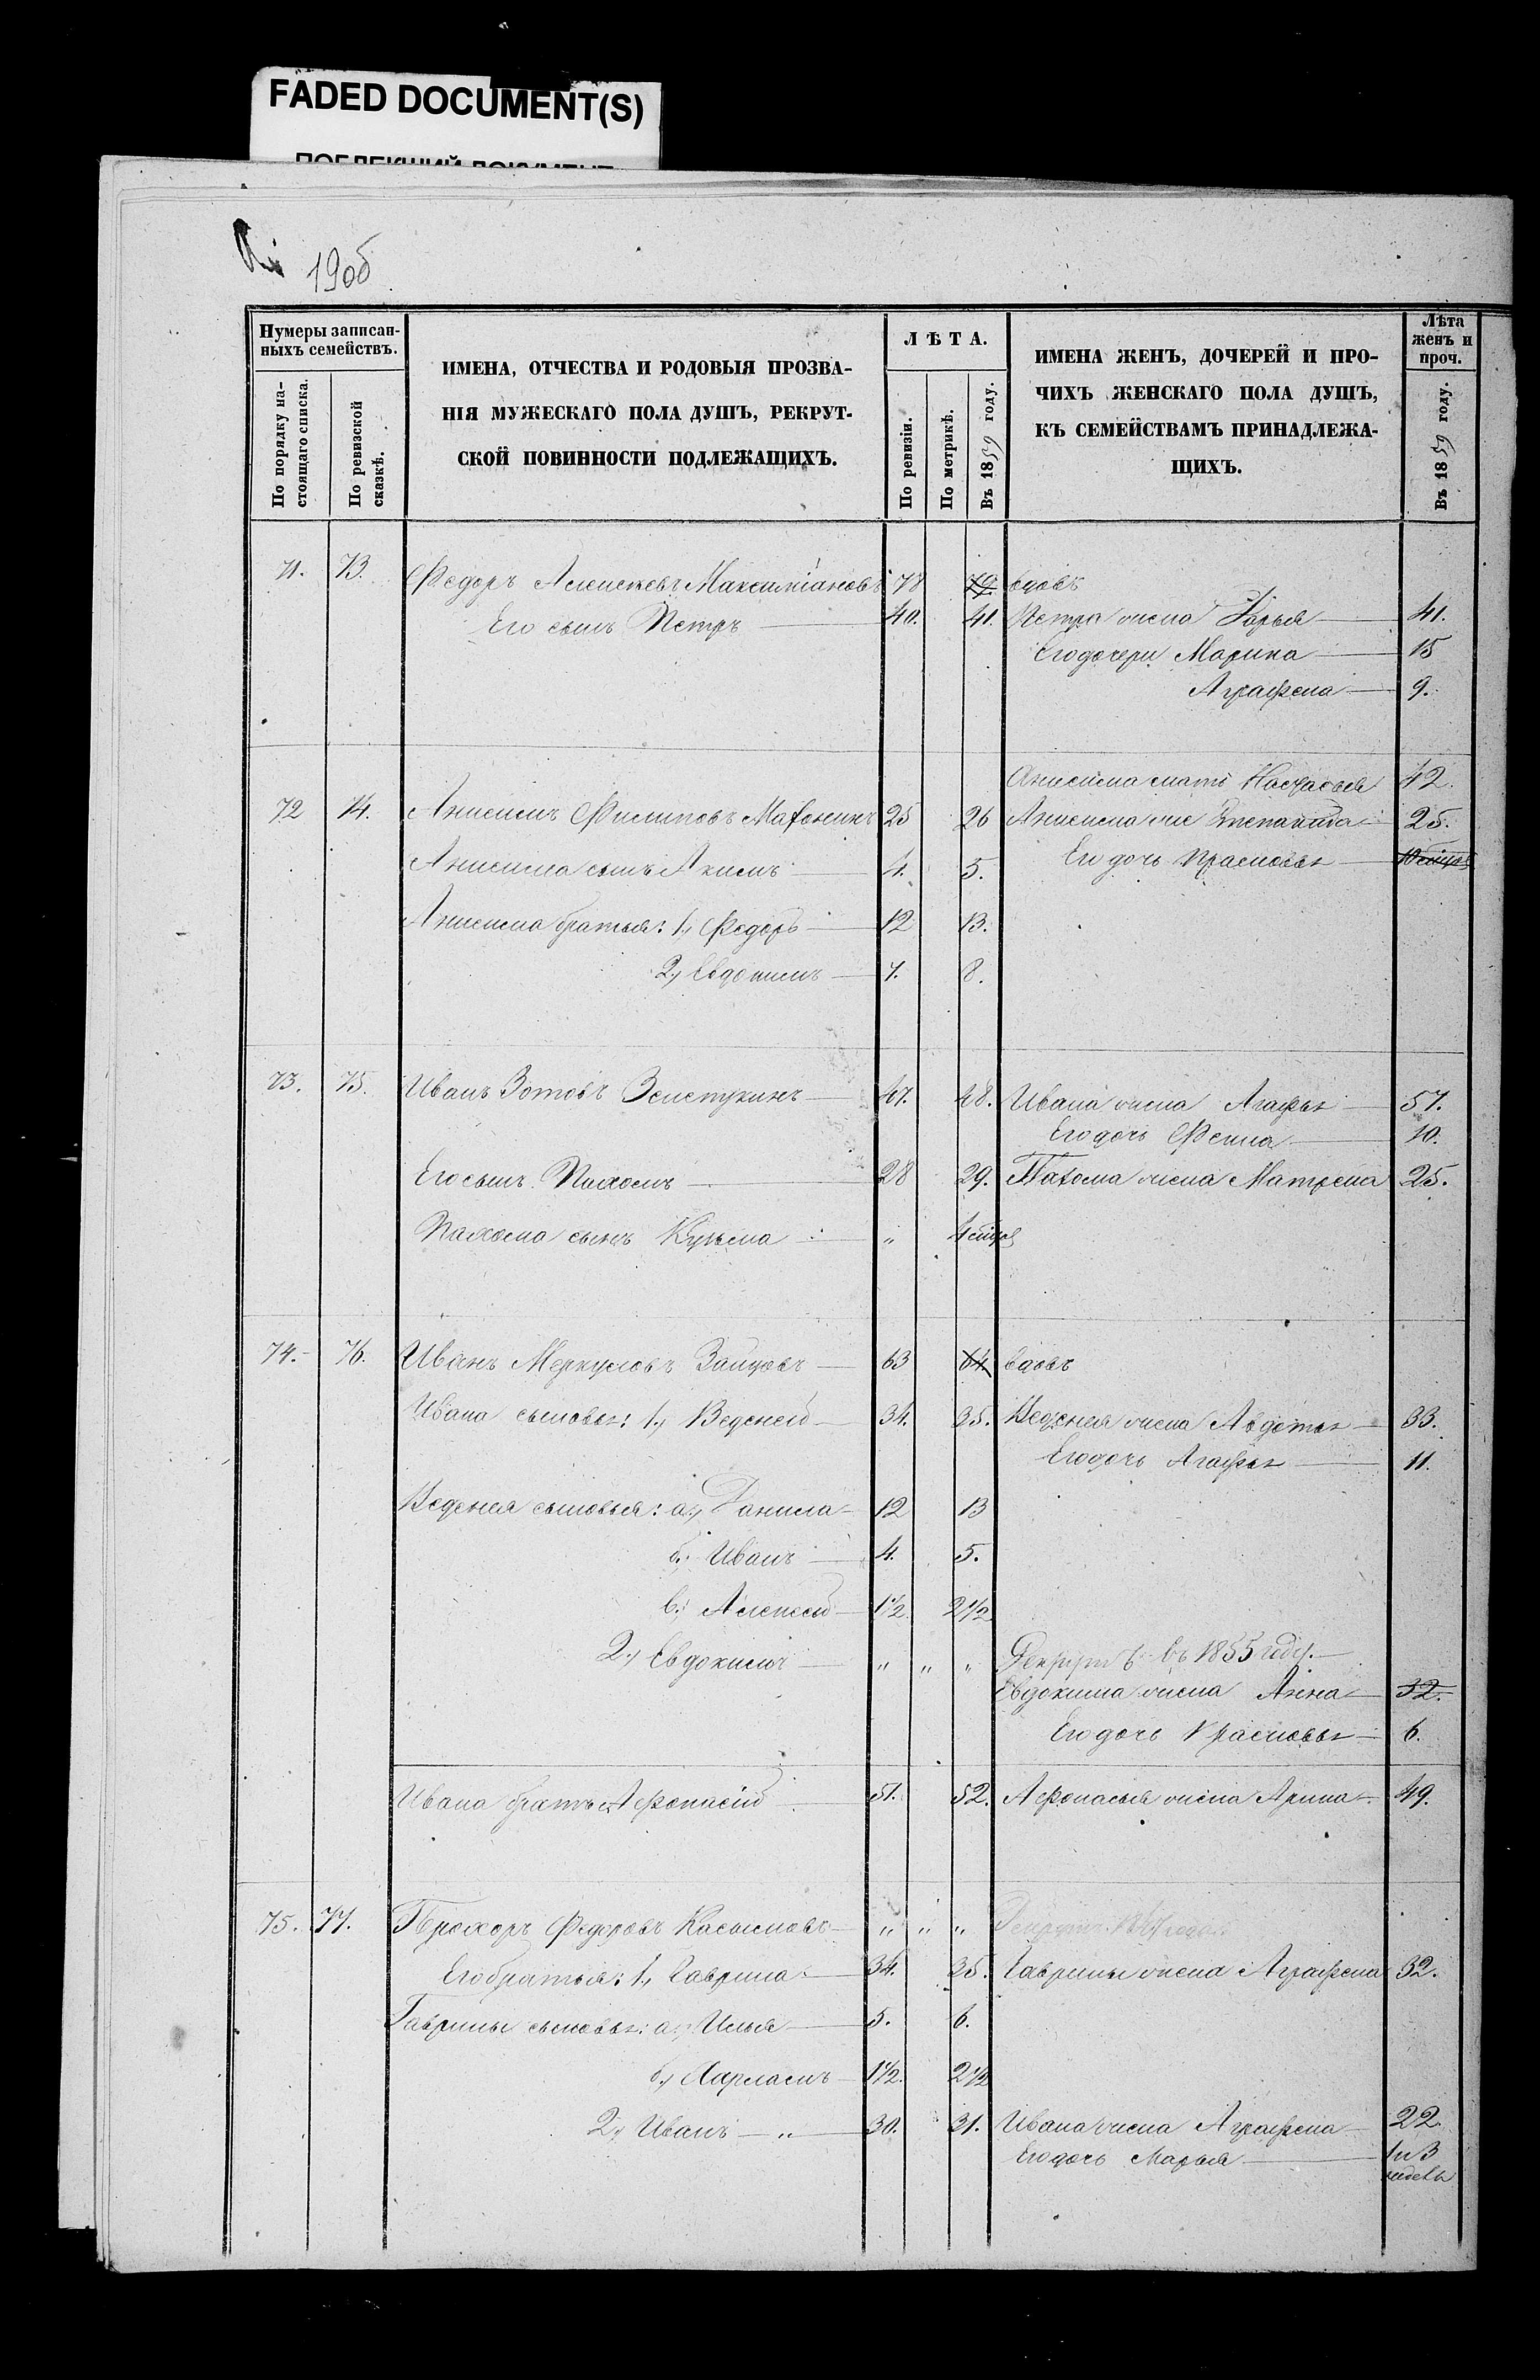 FADED DOCUMENT(S)
190об
Нумеры записан-
ныхъ семействъ.
По порядку на-
стоящаго списка.
По ревизской
сказкѣ.
ИМЕНА, ОТЧЕСТВА И РОДОВЫЯ ПРОЗВА-
НІЯ МУЖЕСКАГО ПОЛА ДУШЪ, РЕКРУТ-
СКОЙ ПОВИННОСТИ ПОДЛЕЖАЩИХЪ.
ЛѢТА.
По ревизіи.
По метрикѣ.
Въ 1859 году.
ИМЕНА ЖЕНЪ, ДОЧЕРЕЙ И ПРО-
ЧИХЪ ЖЕНСКАГО ПОЛА ДУШЪ,
КЪ СЕМЕЙСТВАМЪ ПРИНАДЛЕЖА-
ЩИХЪ.
Лѣта
женъ и
проч.
Въ 1859 году.
71. 73. Федоръ Алексѣевъ Максиміановъ 78 79. вдовъ
Его сынъ Петръ 40. 41. Петра жена Дарья 41.
Его дочери Марина 15
Аграфена 9.
Анисима мать Настасья 42.
72 74. Анисимъ Филиповъ Мафонинъ 25 26 Анисима же Степанида 25.
Анисима сынъ Акимъ 4. 5. Его дочь Прасковья
Анисима братья: 1., Федоръ 12 13.
2., Евдокимъ 7. 8.
73. 75. Иванъ Зотовъ 47. 48. Ивана жена Агафья 57.
Его дочь Фекла 10.
Его сынъ Пахомъ 28 29. Пахома жена Матрена 25.
Пахома сынъ Кузьма „
74. 76. Иванъ Меркуловъ Зайцовъ 63 64 вдовъ
Ивана сыновья: 1., Веденей 34. 35. Веденея жена Авдотья 33.
Его дочь Агафья 11.
Веденея сыновья: а., Данила 12 13
б., Иванъ 4. 5.
в., Алексей 1½ 2½
2., Евдокимъ „ „ „ Рекрутъ въ 1855 году.
Евдокима жена Анна 32.
Его дочь Прасковья 6.
Ивана братъ Афонасій 51. 52. Афонасья жена Арина 49.
75. 77. Прохоръ Федоровъ Касымовъ „ „ „
Его братья: 1., Гаврила 34. 35. Гаврилы жена Аграфена 32.
Гаврилы сыновья: а., Илья 5. 6.
б., Харламъ 1½. 2½
2., Иванъ „ 30. 31. Ивана жена Аграфена 22.
Его дочь Марья 1 и 3
недели